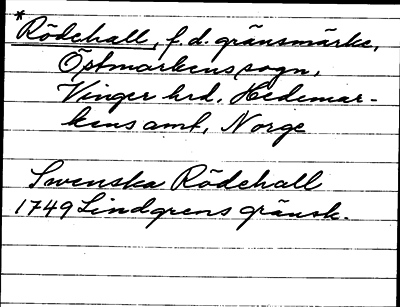 *Rödehall, f.d. gränsmärke,
Östmarkens sogn,
Vinger hrd, Hedemar-
kens amt, Norge
Svenska Rödehall
1749 Lindgrens gränsk.